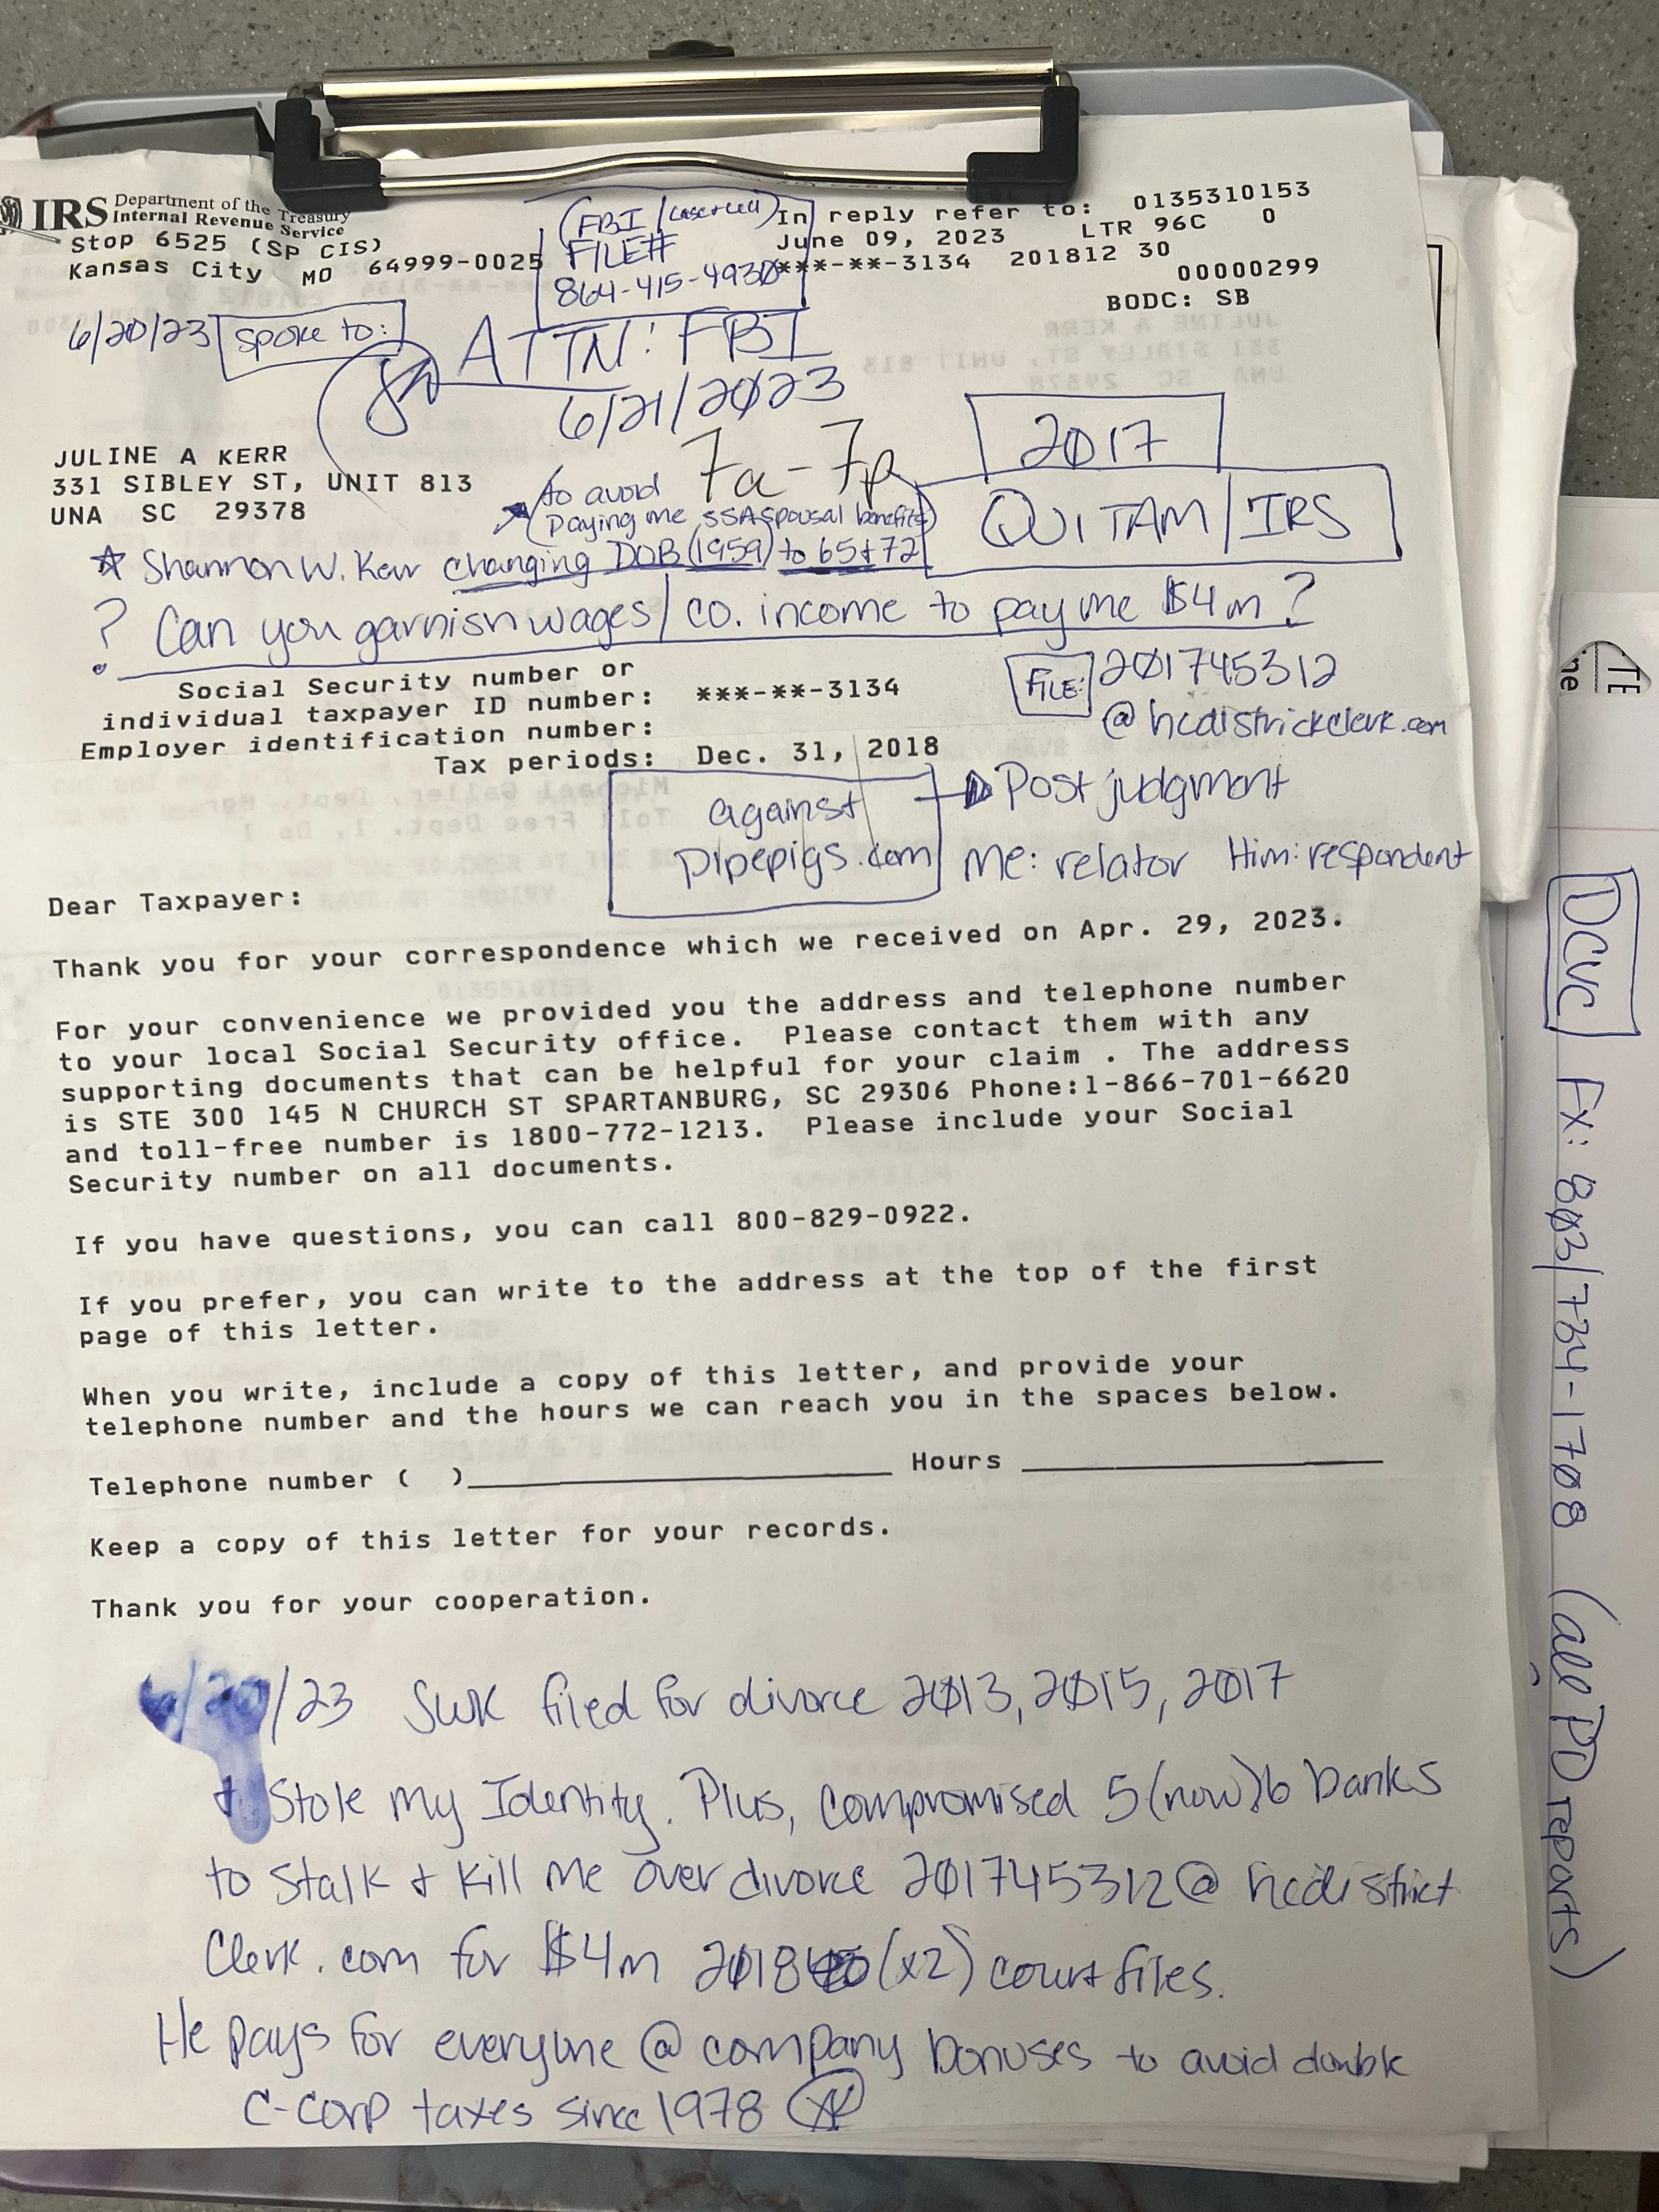 IRS Department of the Treasury
Internal Revenue Service
Stop 6525 (SP CIS)
Kansas City MO 64999-0025
(FBI
FILE#
864-415-4930
In reply refer to: 0135310153
June 09, 2023 LTR 96C 0
***-**-3134 201812 30
00000299
BODC: SB
6/20/23 Spoke to:
ATTN: FBI
6/21/2023
7a-7p
2017
JULINE A KERR
331 SIBLEY ST, UNIT 813
UNA SC 29378
to avoid
Paying me SSA Spousal benefits)
QUI TAM/IRS
Shannon W. Kerr changing DOB (1959) to 65+72
? Can you garnish wages/co. income to pay me $4m?
Social Security number or
individual taxpayer ID number: ***-**-3134
Employer identification number:
Tax periods: Dec. 31, 2018
FILE: 201745312
@hcdistrickclerk.com
against
pipepigs.com
Post judgment
Me: relator Him: respondent
Dear Taxpayer:
Thank you for your correspondence which we received on Apr. 29, 2023.
For your convenience we provided you the address and telephone number
to your local Social Security office. Please contact them with any
supporting documents that can be helpful for your claim . The address
is STE 300 145 N CHURCH ST SPARTANBURG, SC 29306 Phone:1-866-701-6620
and toll-free number is 1800-772-1213. Please include your Social
Security number on all documents.
If you have questions, you can call 800-829-0922.
If you prefer, you can write to the address at the top of the first
page of this letter.
When you write, include a copy of this letter, and provide your
telephone number and the hours we can reach you in the spaces below.
Telephone number ( ) Hours
Keep a copy of this letter for your records.
Thank you for your cooperation.
6/20/23 SWK filed for divorce 2013, 2015, 2017
+ Stole my Identity. Plus, compromised 5(now)6 banks
to Stalk + Kill me over divorce 201745312@hcdistrict
Clerk.com for $4m (x2) court files.
He pays for everyone @ company bonuses to avoid double
C-Corp taxes since 1978
DCVC Fx: 803/734-1708 (all PD reports)